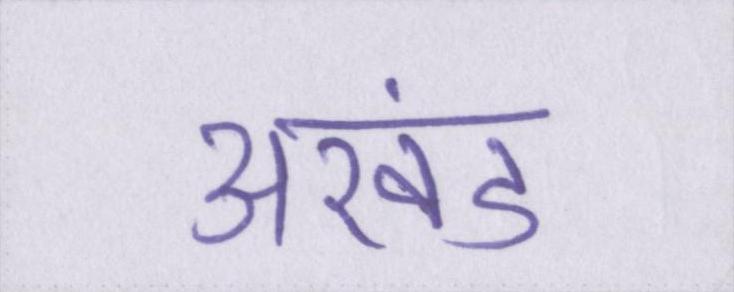 अखंड